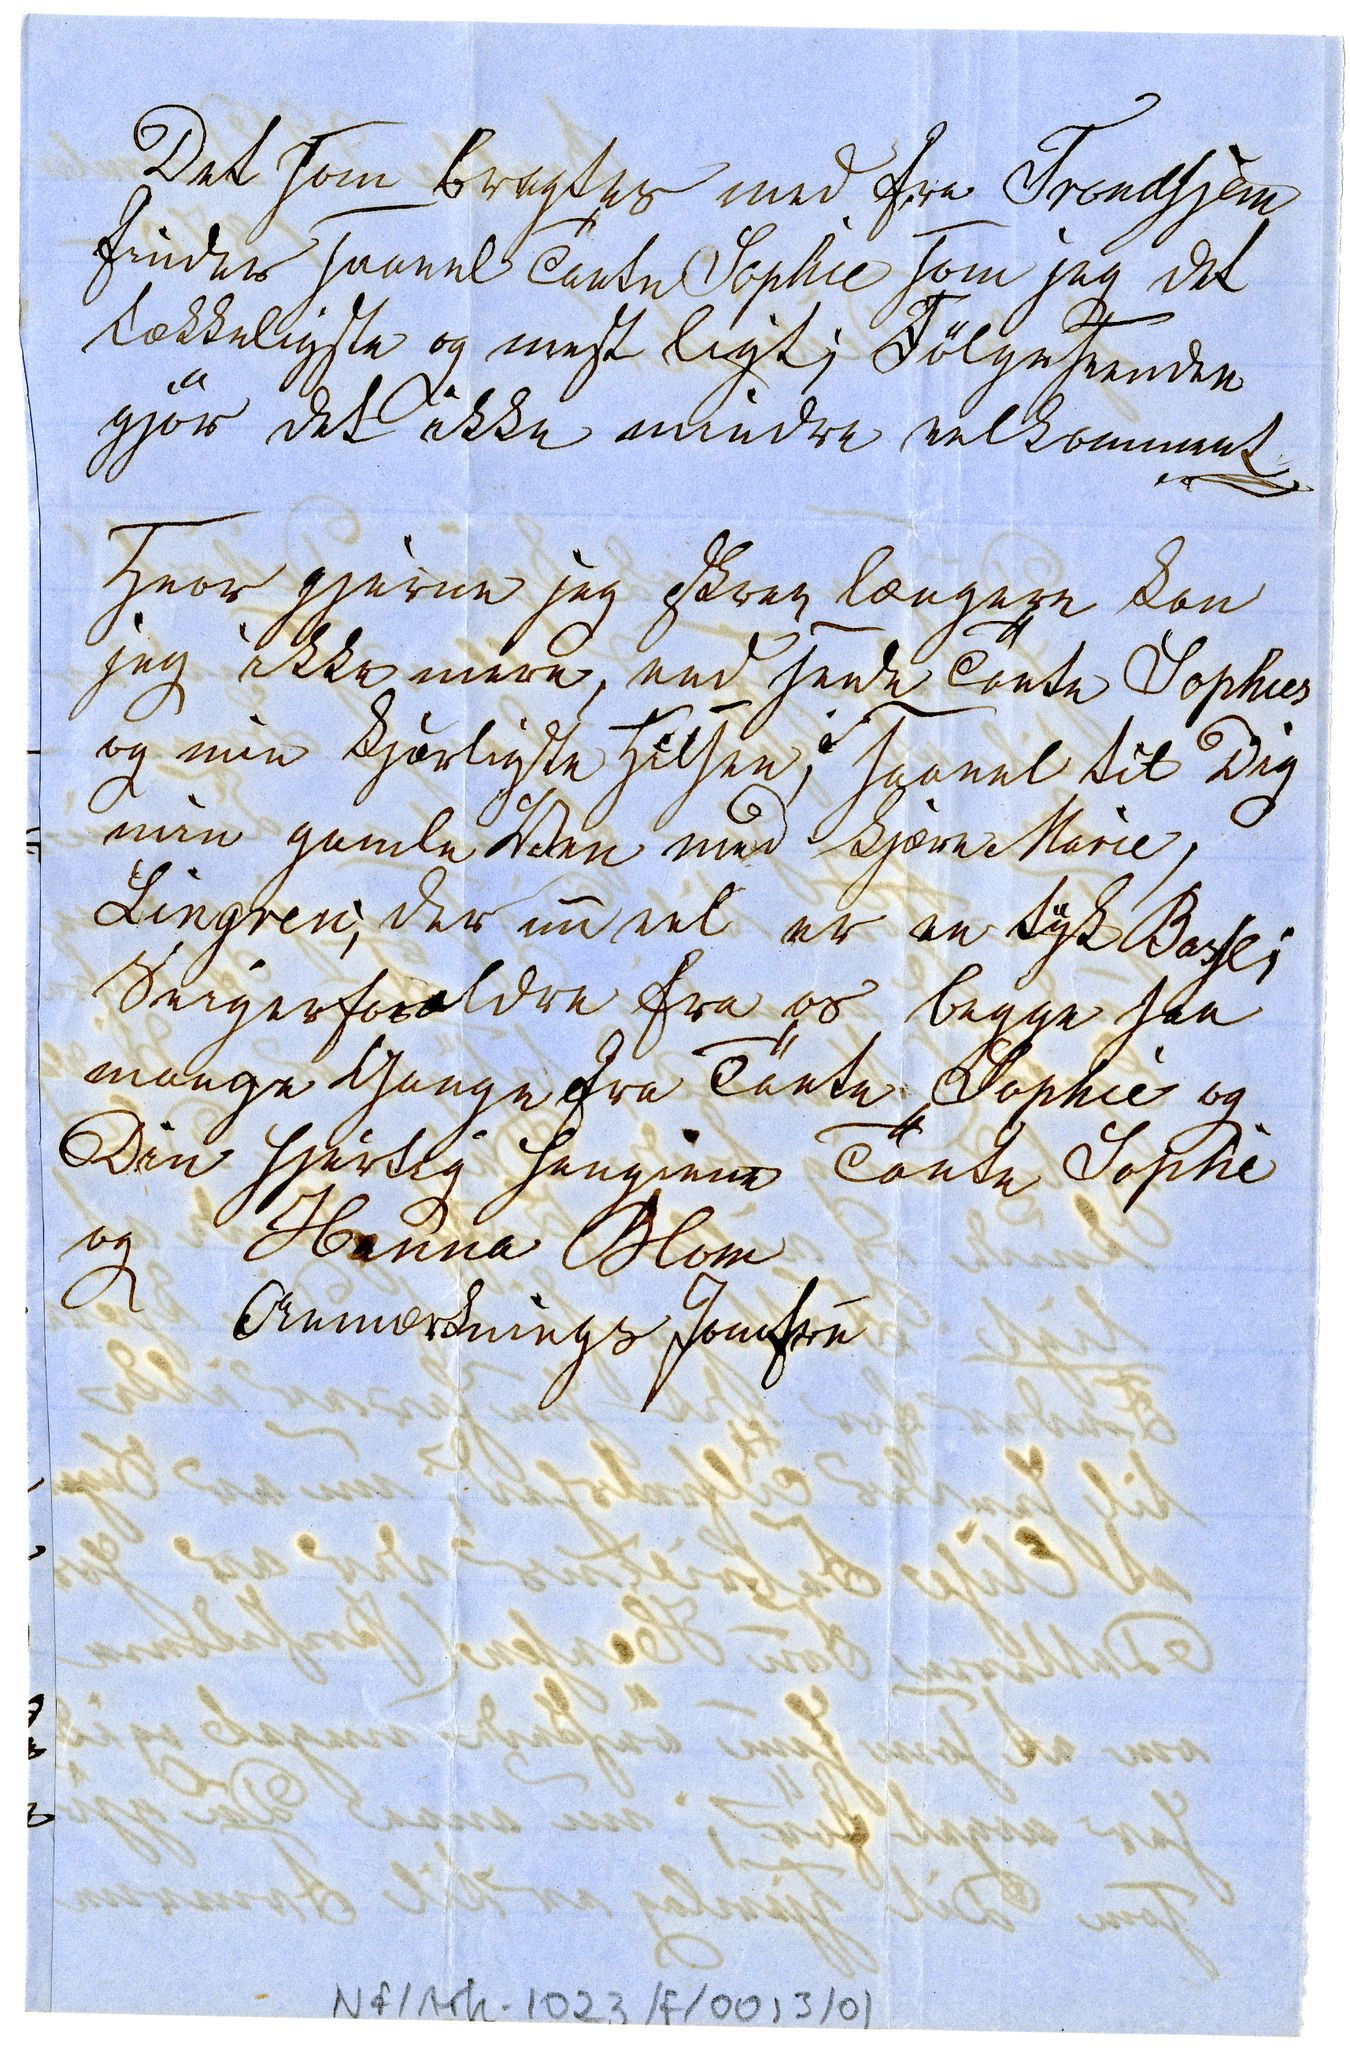 Det som bragtes med fra Trondhjem
finder saavel Tante Sophie som jeg det
lækkeligste og mest ligt; Følgeseenden
gjør det ikke mindre velkomment
Hvor gjerne jeg skrev længere kan
jeg ikke mere, end sende Tante Sophies
og min kjærligste Hilsen, saavel til Dig
min gamle Ven med kjære Marie,
Lingren, der nu vel er en tyk Basse;
Svigerforældre fra os begge saa
mange Gange fra Tante Sophie og
Din hjertelig hengivne Tante Sophie
og Hanna Blom
Anmærknings Jomfru
NF/Ark-1023/F/0013/01